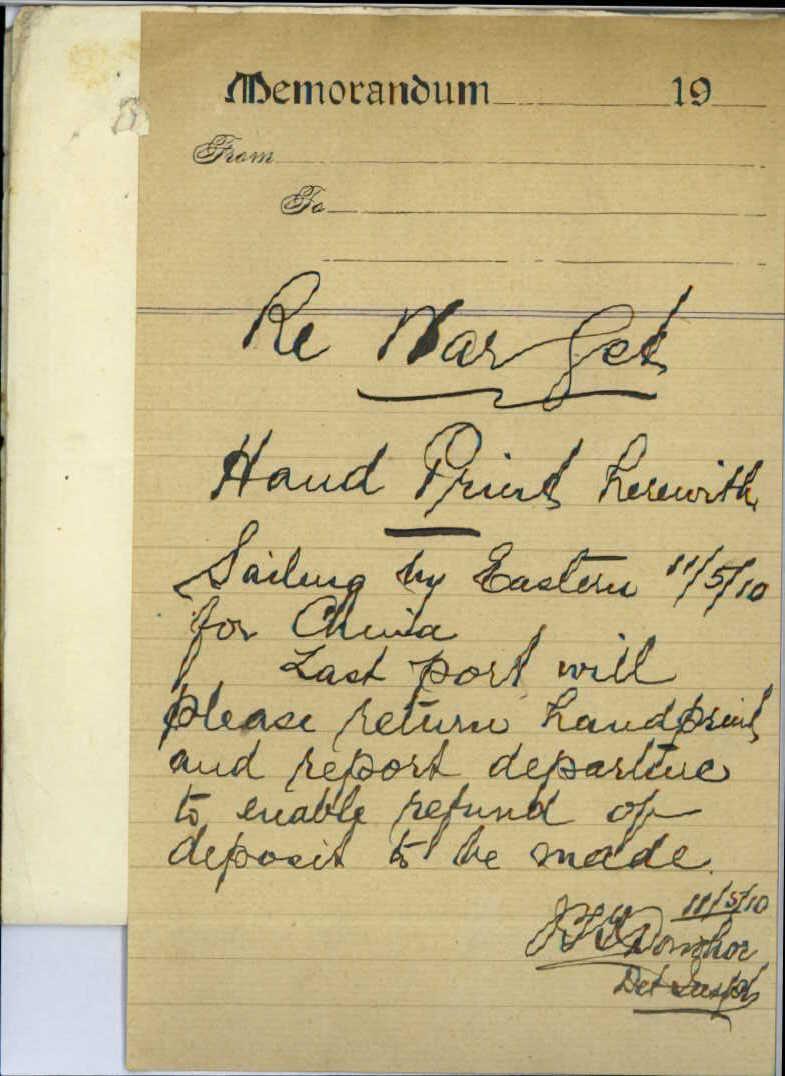 Memorandum 19
From
To
Re War Get
Hand Print herewith
Sailing by Eastern 11/5/10
for China
Last port will
please return handprint
and report departure
to enable refund of
deposit to be made.
11/5/10
Donohoe
Det Inspr